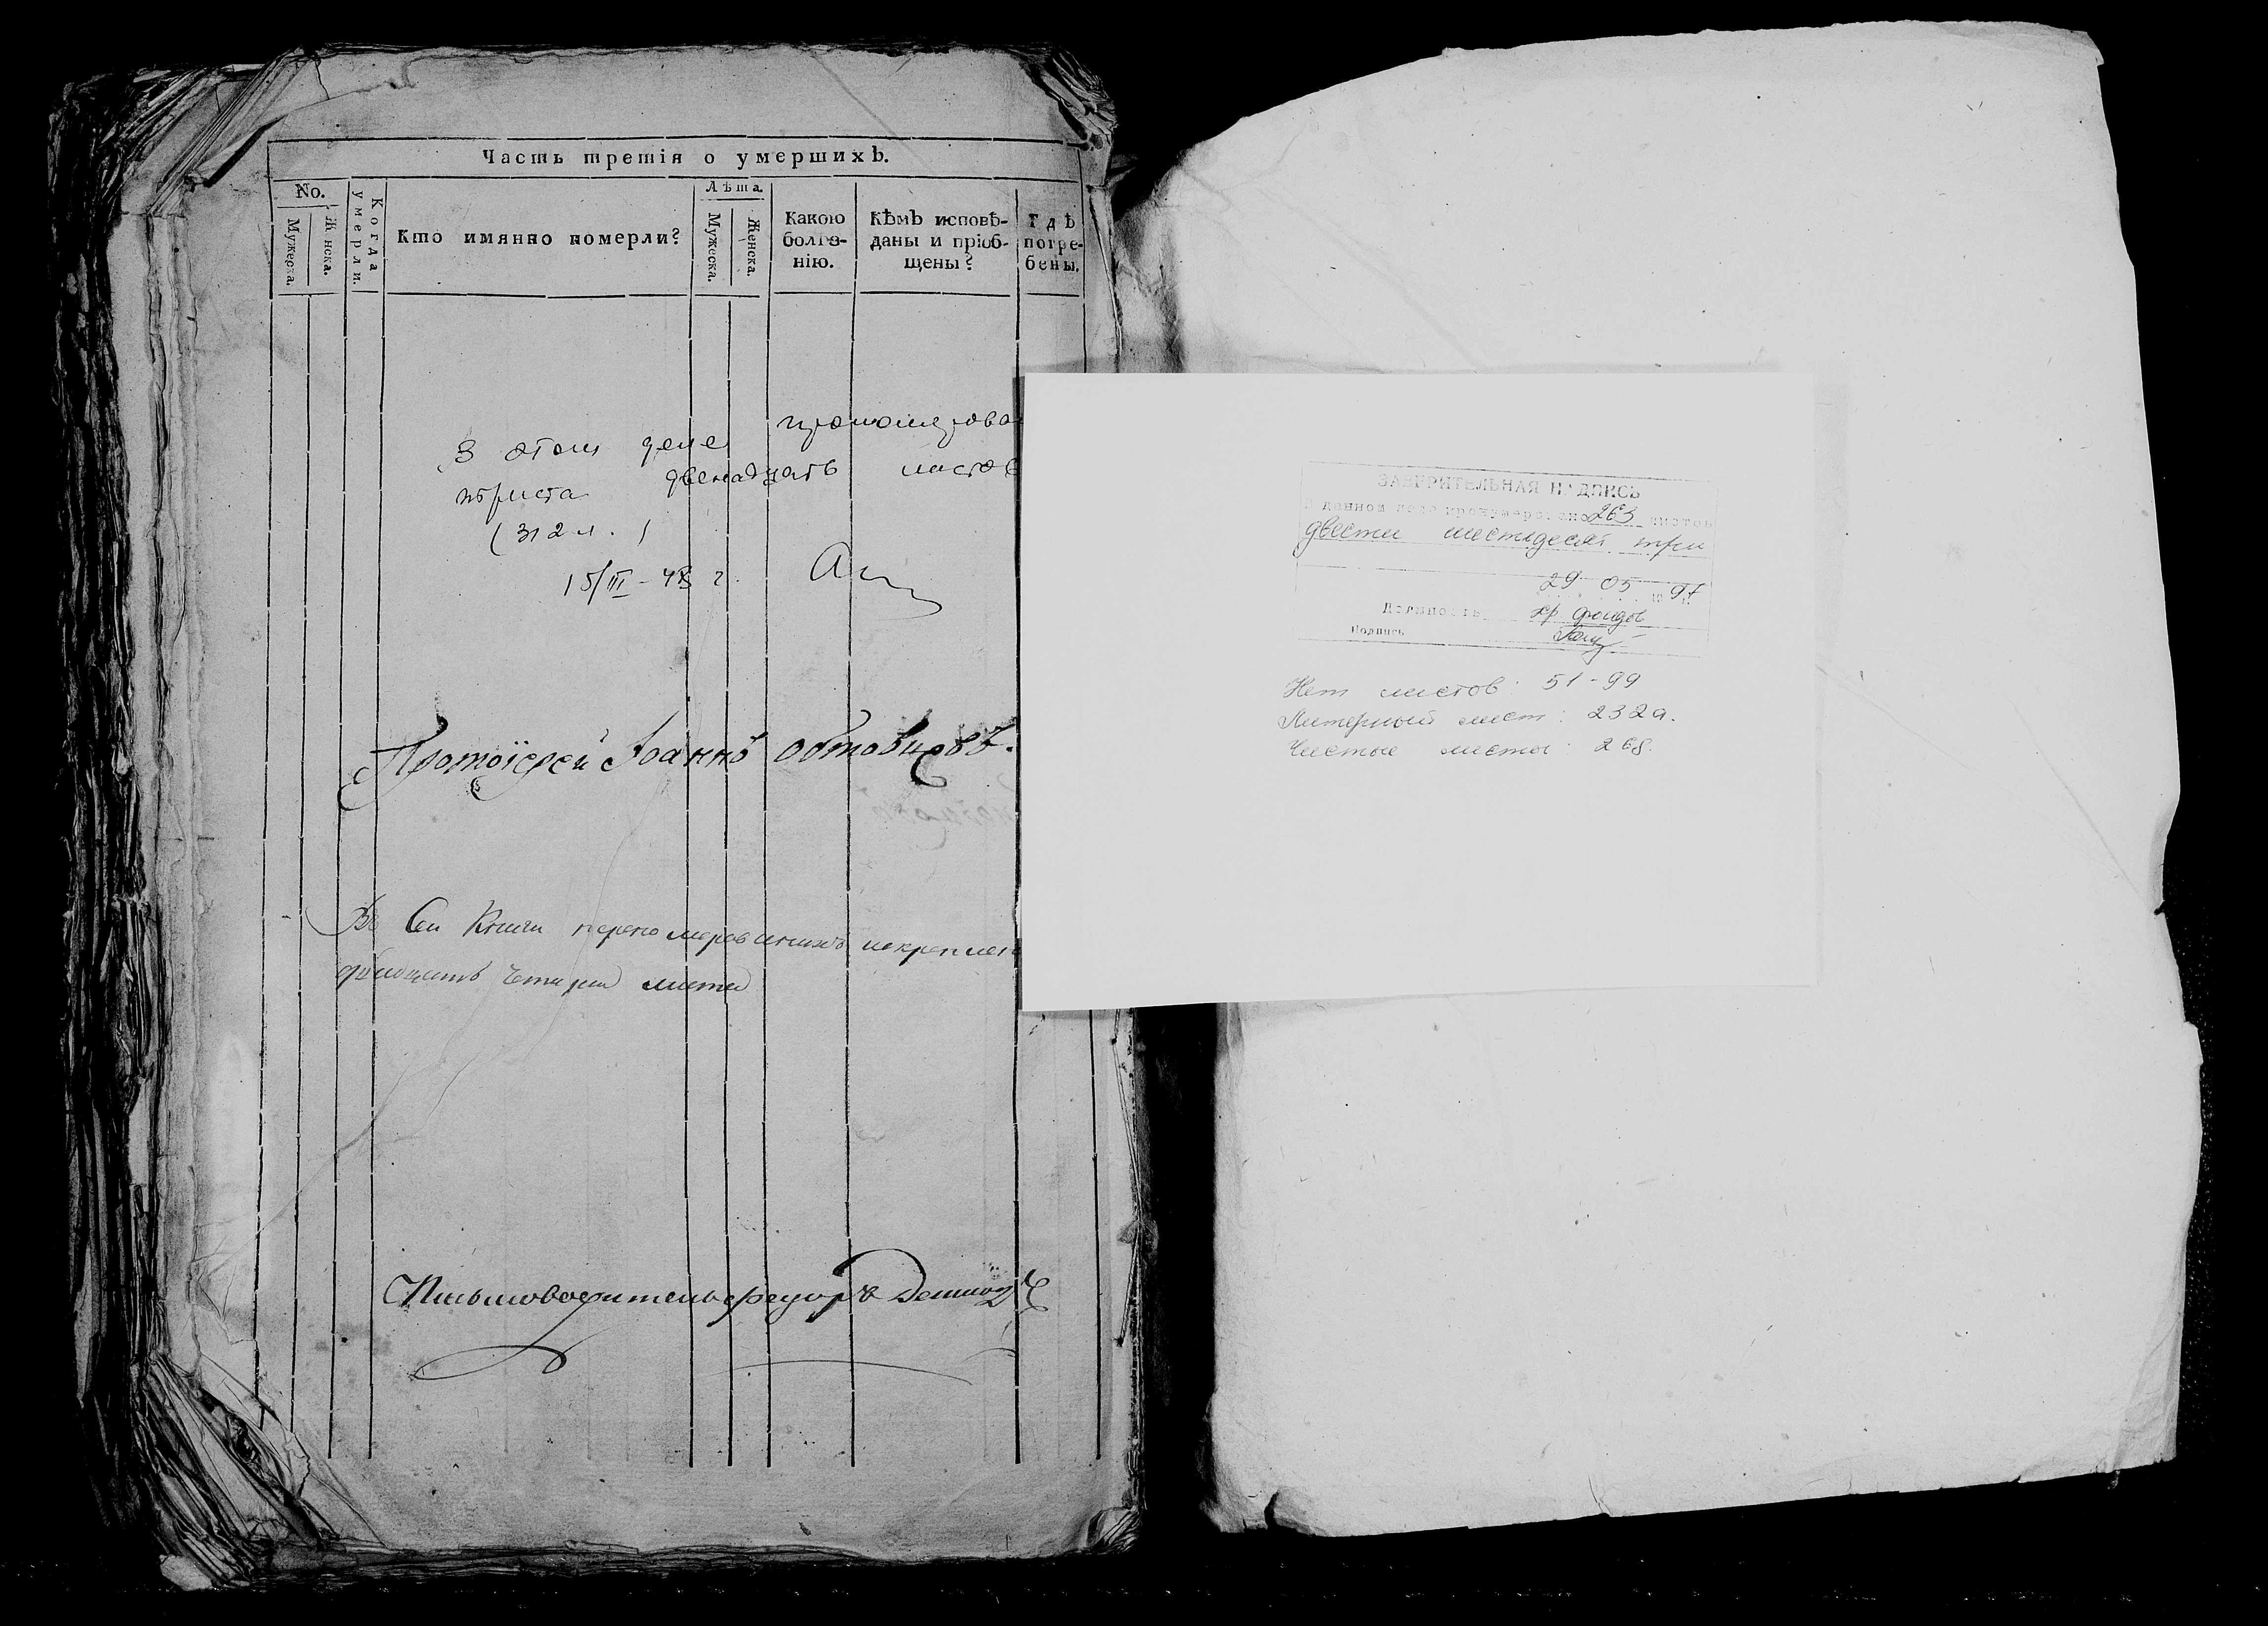 Часть третія о умершихъ.
No.
Мужеска.
Женска.
Когда умерли.
Кто имянно померли?
Лѣта.
Мужеска.
Женска.
Какою
болѣз-
нію.
Кѣмъ исповѣ-
даны и пріоб-
щены?
Гдѣ
погре-
бены.
В этом деле прономерова
триста двенадцать листов
(312 л.)
15/III-48 г.
Протоіерей Іоаннъ
В Сей Книги
четыри листа
Письмоводитель Федоръ
ЗАВЕРИТЕЛЬНАЯ НАДПИСЬ
В данном деле пронумеровано 263 листов
двести шестьдесят три
29 05 1997 г.
Должность хр. фондов
Подпись
Нет листов: 51-99
Литерный лист: 232а.
Чистые листы: 268.